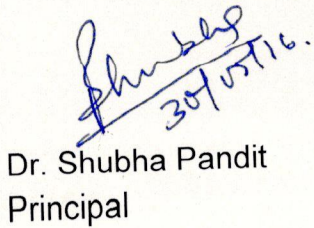 Shubha
30/05/16.
Dr. Shubha Pandit
Principal